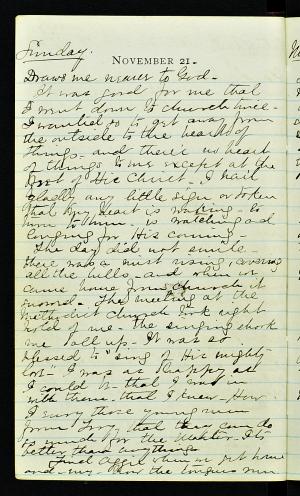 Sunday.
NOVEMBER 21.
Draws me nearer to God -
It was good for me that
I went down to church twice.
I wanted so to get away from
the outside to the heart of
things - and there's no heart
of things to me except at the
feet of His Christ - I hail
gladly any little sign or token
that my heart is waiting - to
Him - is watching and
longing for His coming
The day did not smile -
there was a mist rising, covering
all the hills - and when we
came home from church it
snowed. The meeting at the
Methodist church took right
hold of me - the singing shook
me all up - It was so
blessed to "sing of His mighty
love" I was as happy as
I could be - that I was in
with them - that I knew - How
I envy those young men
from Troy, that they can do
so much for the Master. It's
better than anything
Aggie when we get home
and - the tongues run